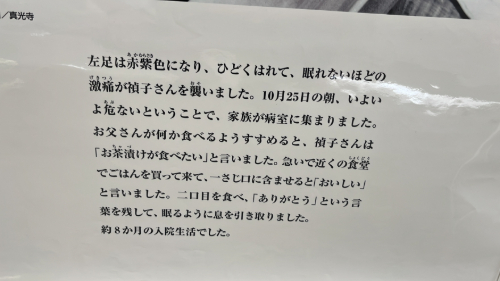 ／真光寺
左足は赤紫色になり、ひどくはれて、眠れないほどの
激痛が禎子さんを襲いました。10月25日の朝、いよい
よ危ないということで、家族が病室に集まりました。
お父さんが何か食べるようすすめると、禎子さんは
「お茶漬けが食べたい」と言いました。急いで近くの食堂
でごはんを買って来て、一さじ口に含ませると「おいしい」
と言いました。二口目を食べ、「ありがとう」という言
葉を残して、眠るように息を引き取りました。
約8か月の入院生活でした。